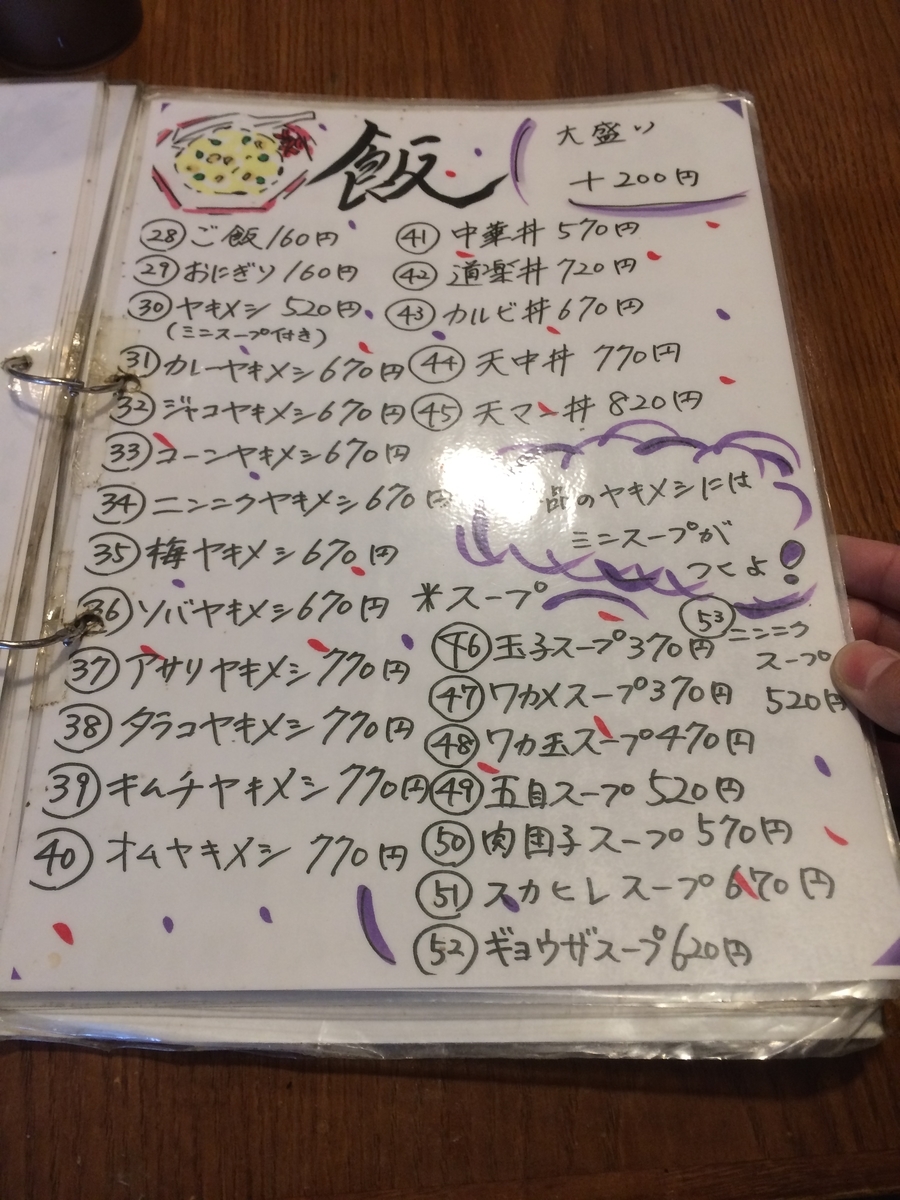 飯
大盛り
+200円
28 ご飯 160円
29 おにぎり 160円
30 ヤキメシ 520円
(ミニスープ付き)
31 カレーヤキメシ 670円
32 ジャコヤキメシ 670円
33 コーンヤキメシ 670円
34 ニンニクヤキメシ 670円
35 梅ヤキメシ 670円
36 ソバヤキメシ 670円
37 アサリヤキメシ 770円
38 タラコヤキメシ 770円
39 キムチヤキメシ 770円
40 オムヤキメシ 770円
41 中華丼 570円
42 道楽丼 720円
43 カルビ丼 670円
44 天中丼 770円
45 天マー丼 820円
品のヤキメシには
ミニスープが
つくよ!
※スープ
46 玉子スープ 370円
47 ワカメスープ 370円
48 ワカ玉スープ 470円
49 五目スープ 520円
50 肉団子スープ 570円
51 スカヒレスープ 670円
52 ギョウザスープ 620円
53 ニンニク
スープ
520円